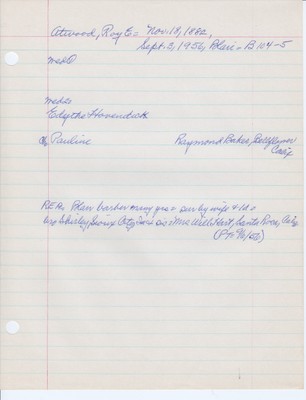 Atwood, Roy E = Nov. 18, 1882,
Sept. 2, 1956, Blair = B 104-5
med①
med2=
Edythe Hovendick
ch, Pauline Raymond Baker, Bellflower
Calif
REH= Blair barber many yrs = sur by wife & ch =
bro Shirley, Sioux City, sis = Mrs Will Hart, Santa Rosa, Calif
(PT= 9/6/56)